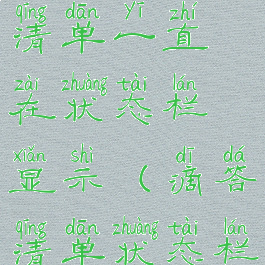 qīng dān yī zhí
清单一直
zài zhuàng tài lán
在状态栏
xiǎn shì dī dá
显示（滴答
qīng dān zhuàng tài lán
清单状态栏